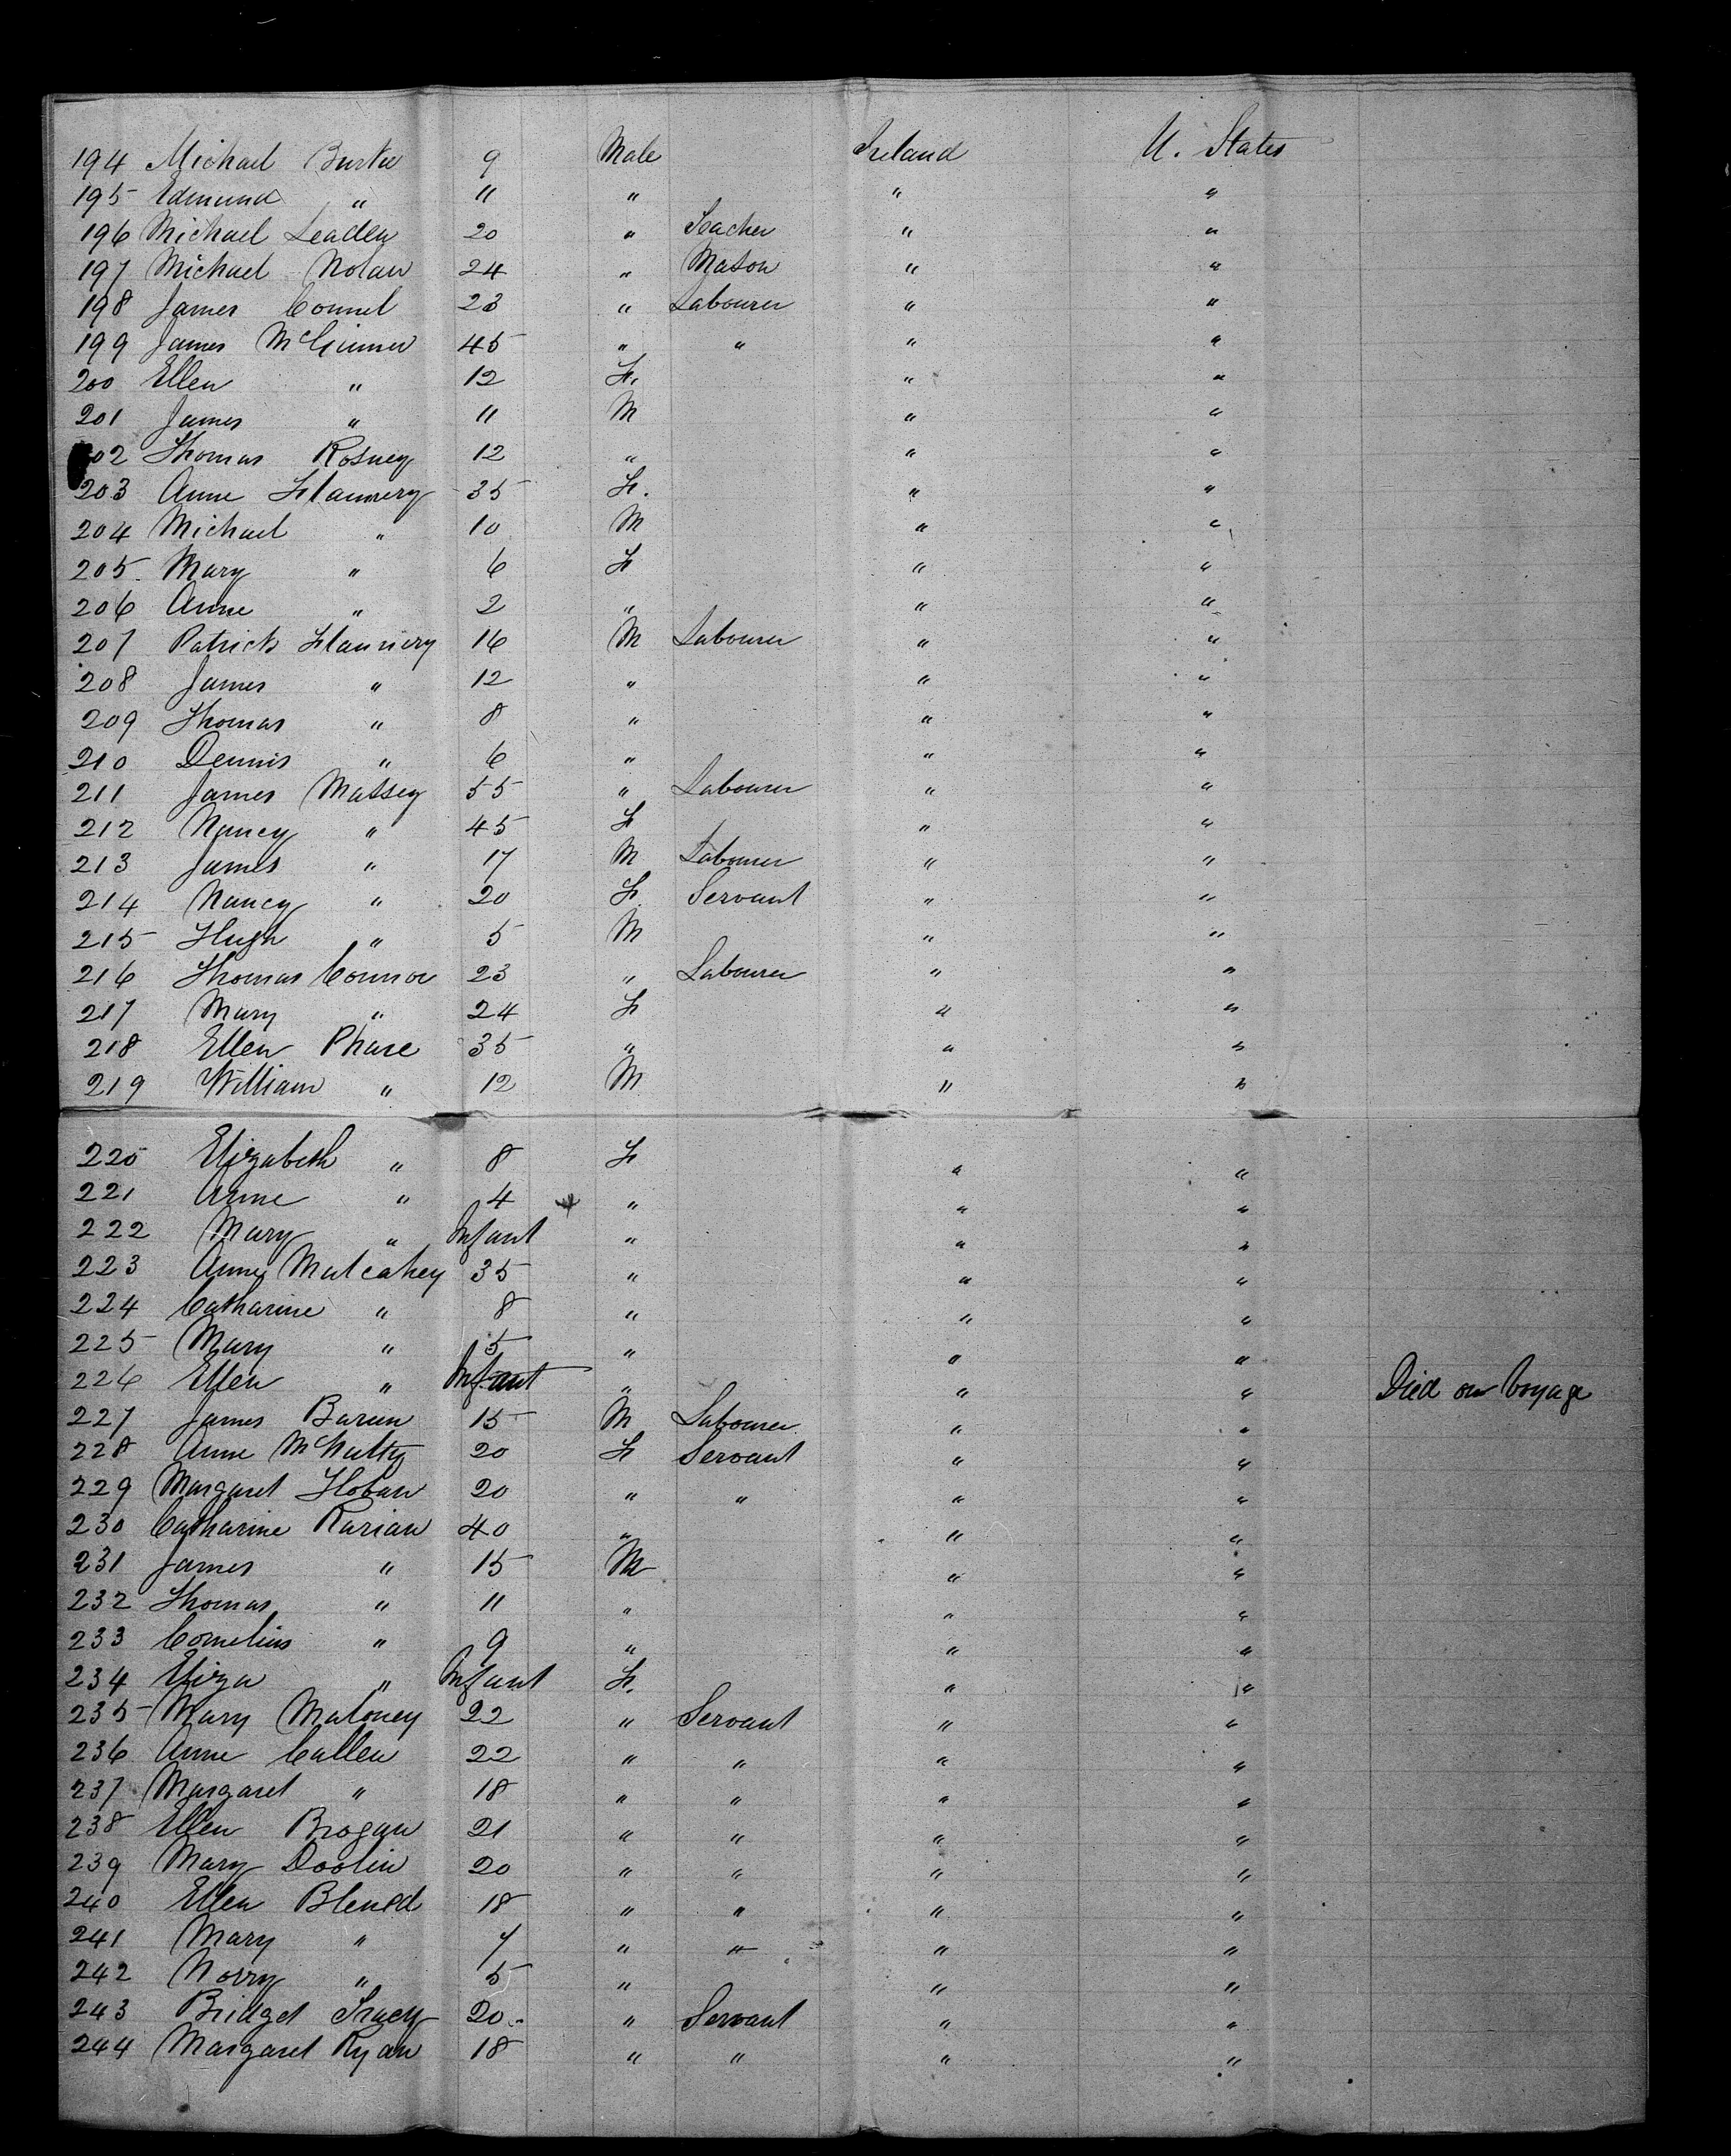 194 Michael Burke 9 Male Ireland U. States
195 Edmund " 11 " " "
196 Michael Leaden 20 " Teacher " "
197 Michael Nolan 24 " Mason " "
198 James Connel 23 " Labourer " "
199 James McGinner 45 " " " "
200 Ellen " 12 F. " "
201 James " 11 M " "
202 Thomas Rosney 12 " " "
203 Anne Flannery 35 F. " "
204 Michael " 10 M " "
205 Mary " 6 F " "
206 Anne " 2 " " "
207 Patrick Flannery 16 M Labourer " "
208 James " 12 " " "
209 Thomas " 8 " " "
210 Dennis " 6 " " "
211 James Massey 55 " Labourer " "
212 Nancy " 45 F " "
213 James " 17 M Labourer " "
214 Nancy " 20 F. Servant " "
215 Hugh " 5 M " "
216 Thomas Connor 23 " Labourer " "
217 Mary " 24 F " "
218 Ellen Phare 35 " " "
219 William " 12 M " "
220 Elizabeth " 8 F " "
221 Anne " 4 " " "
222 Mary " Infant " " "
223 Anny Mulcahey 35 " " "
224 Catharine " 8 " " "
225 Mary " 5 " " "
226 Ellen " Infant " " " Died on Voyage
227 James Baren 15 M Labourer " "
228 Anne McNulty 20 F Servant " "
229 Margaret Hoban 20 " " " "
230 Catharine Rarian 40 " " "
231 James " 15 M " "
232 Thomas " 11 " " "
233 Cornelius " 9 " " "
234 Eliza " Infant F. " "
235 Mary Maloney 22 " Servant " "
236 Anne Cullen 22 " " " "
237 Margaret " 18 " " " "
238 Ellen Brogan 21 " " " "
239 Mary Doolin 20 " " " "
240 Ellen Blened 18 " " " "
241 Mary " 7 " " " "
242 Norry " 5 " " "
243 Bridget Tracy 20 " Servant " "
244 Margaret Ryan 18 " " " "